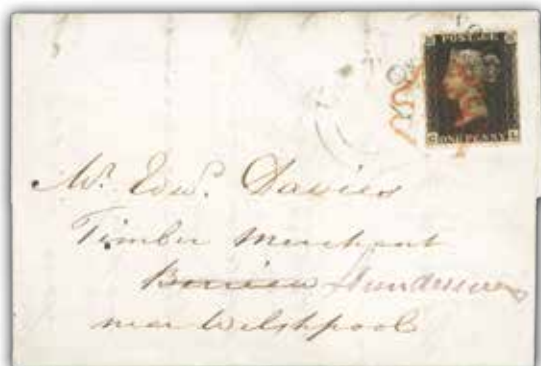 POSTAGE
ONE PENNY
Mr. Edwd. Davies
Timber Merchant
near Welshpool